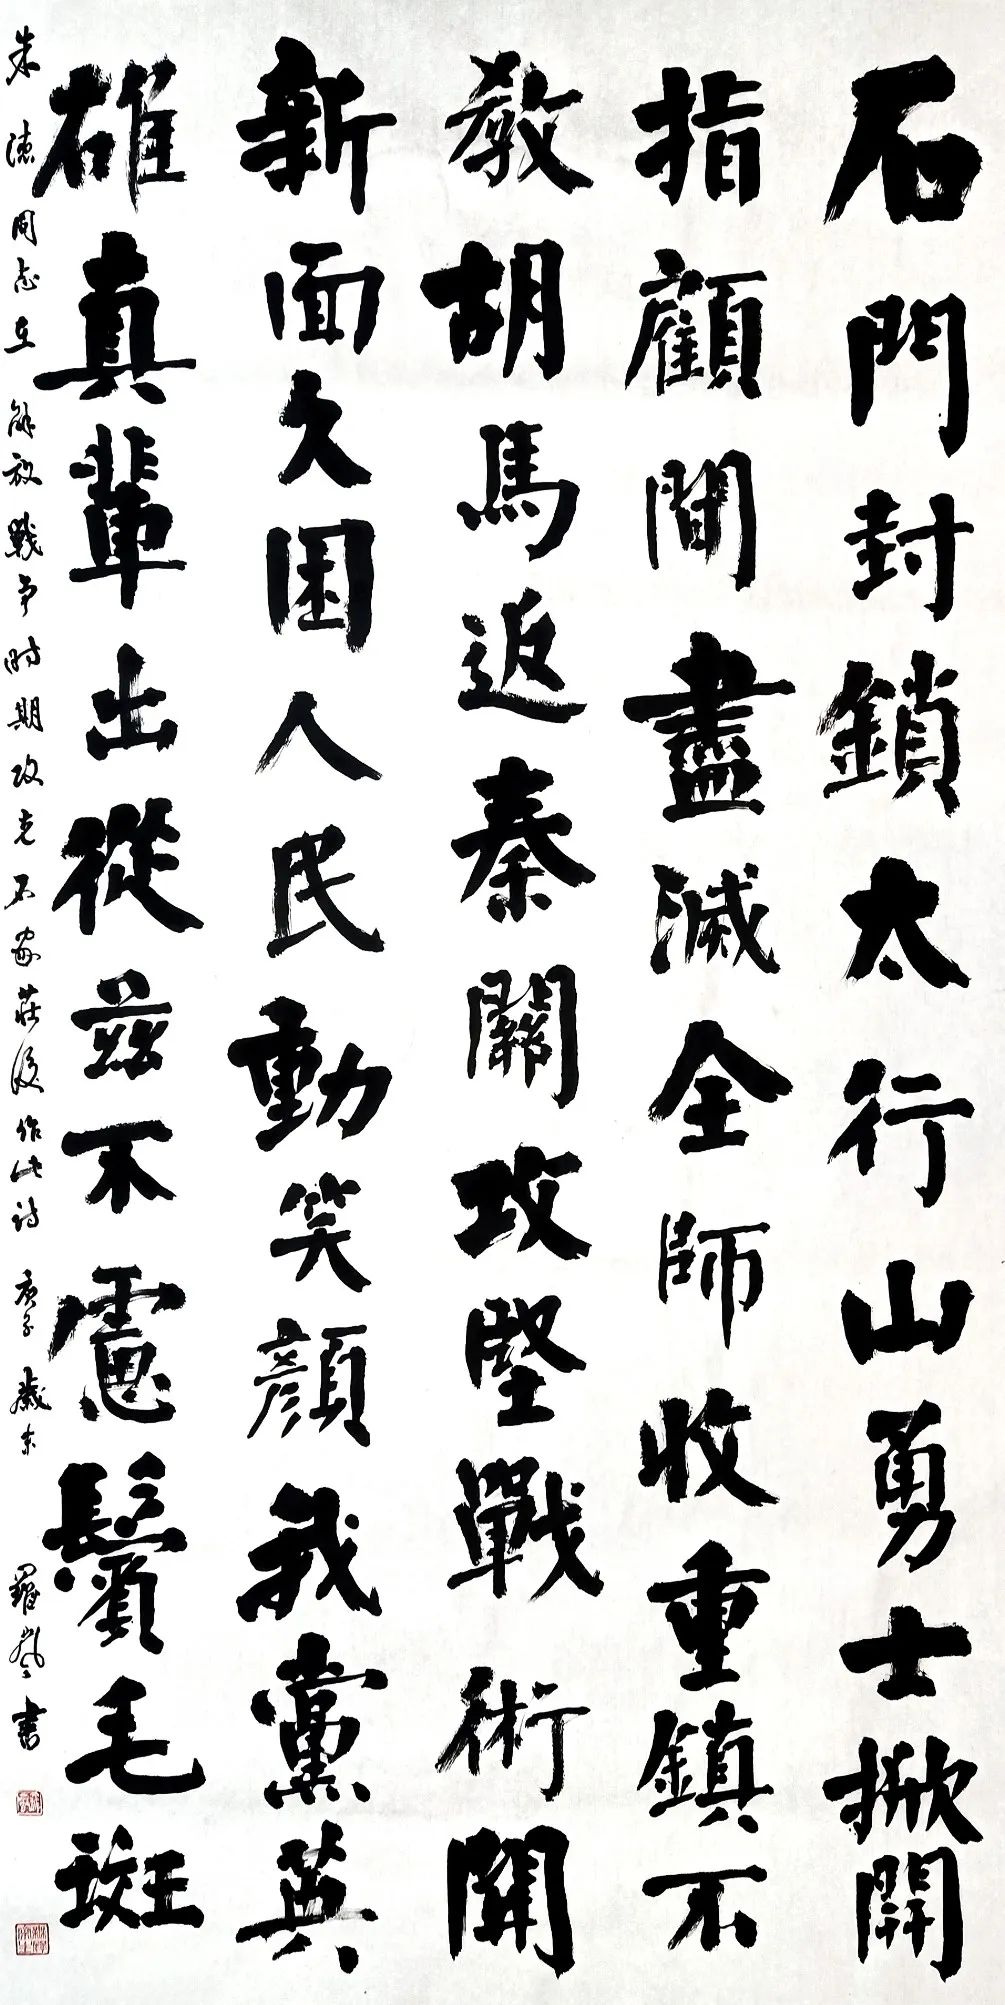 石門封鎖太行山勇士掀開
指顧間盡滅全師收重鎮不
教胡馬返秦關攻堅戰術開
新面久困人民動笑顏我黨英
雄真輩出從茲不慮鬢毛斑
朱德同志在解放戰爭時期攻克石家莊後作此詩 庚子歲末 羅嵐書